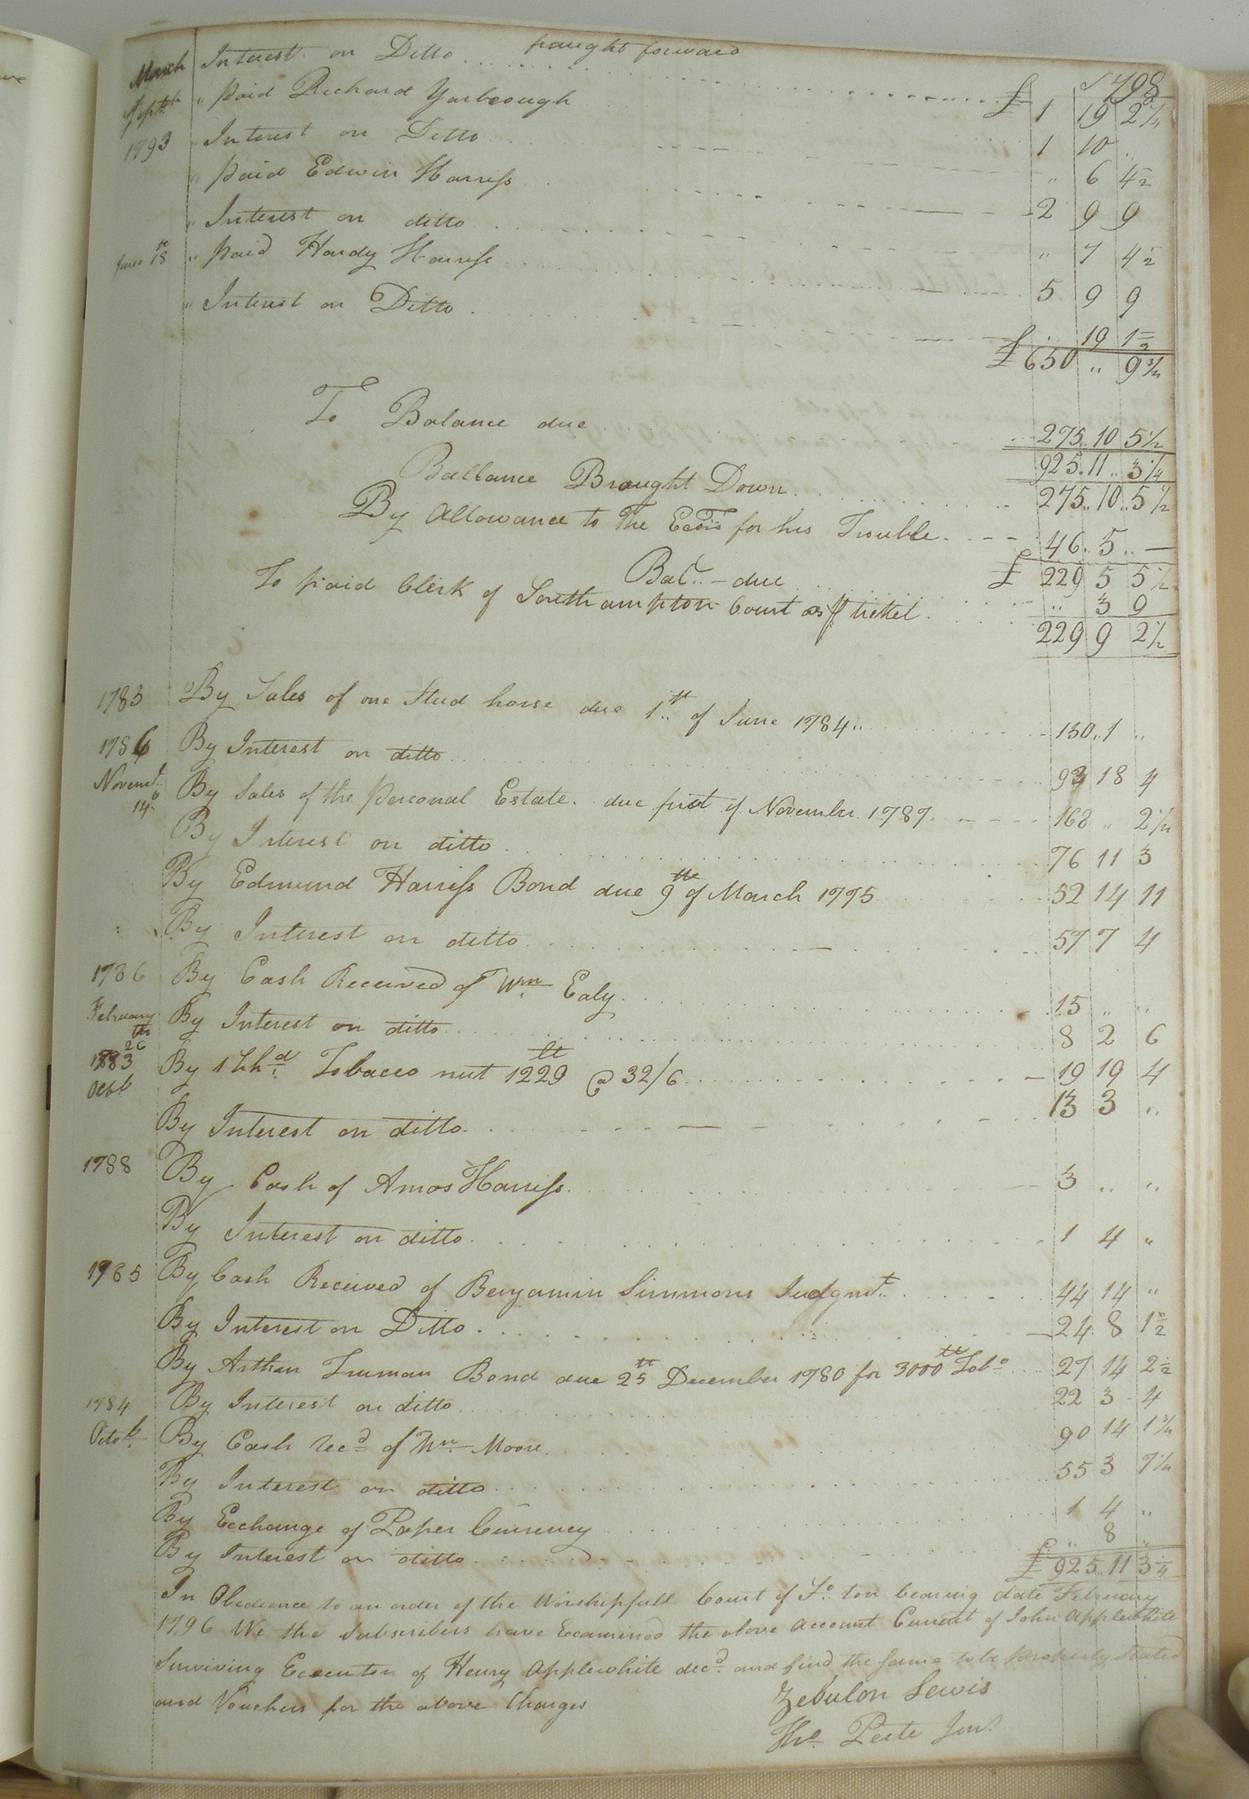 March Interest on Ditto brought forward
Sept " paid Richard Yarbrough £ 1 19 2¼
1793 Interest on Ditto 1 10
" paid Edwin Harriss " 6 4½
" Interest on ditto 2 9 9
June 18th " paid Hardy Harriss " 7 4½
" Interest on Ditto 5 9 9
19 1½
£ 650 " 9¾
To Balance due 275 10 5½
925 11 3¼
Ballance Brought Down 275 10 5½
By Allowance to The Exors for his Trouble 46 5 —
Bal. due £ 229 5 5½
To paid Clerk of Southampton Court as ticket " 3 9
229 9 2½
1783 By Sales of one Stud horse due 1st of June 1784 130 1 "
1786 By Interest on ditto 93 18 4
Novemr 14 By Sales of the Personal Estate due first of November 1787 168 " 2½
By Interest on ditto 76 11 3
By Edmund Harriss Bond due 9th of March 1775 52 14 11
By Interest on ditto 57 7 4
1786 By Cash Received of Wm Ealy 15 " "
February 26th By Interest on ditto 8 2 6
1783 Octo By 1 hhd Tobacco nut 1229 lt @ 32/6 19 19 4
By Interest on ditto 13 3 "
1788 By Cash of Amos Harriss 3 " "
By Interest on ditto 1 4 "
1785 By Cash Received of Benjamin Simmons Judgmt 44 14 "
By Interest on Ditto 24 8 1½
By Arthur Truman Bond due 25th December 1780 for 3000 tt Tobo 27 14 2½
1784 By Interest on ditto 22 3 4
Octob By Cash Recd of Wm Moore 90 14 1¾
By Interest on ditto 55 3 7¼
By Exchange of Paper Currency 1 4 "
By Interest on ditto " 8 "
£ 925 11 3¼
In Obedience to an order of the Worshipfull Court of So ton bearing date February
1796 We the Subscribers have Examined the above Account Current of John Applewhite
Surviving Executor of Henry Applewhite decd and find the same to be Properly Stated
and Vouchers for the above Charges
Zebulon Lewis
Tho Peete Junr